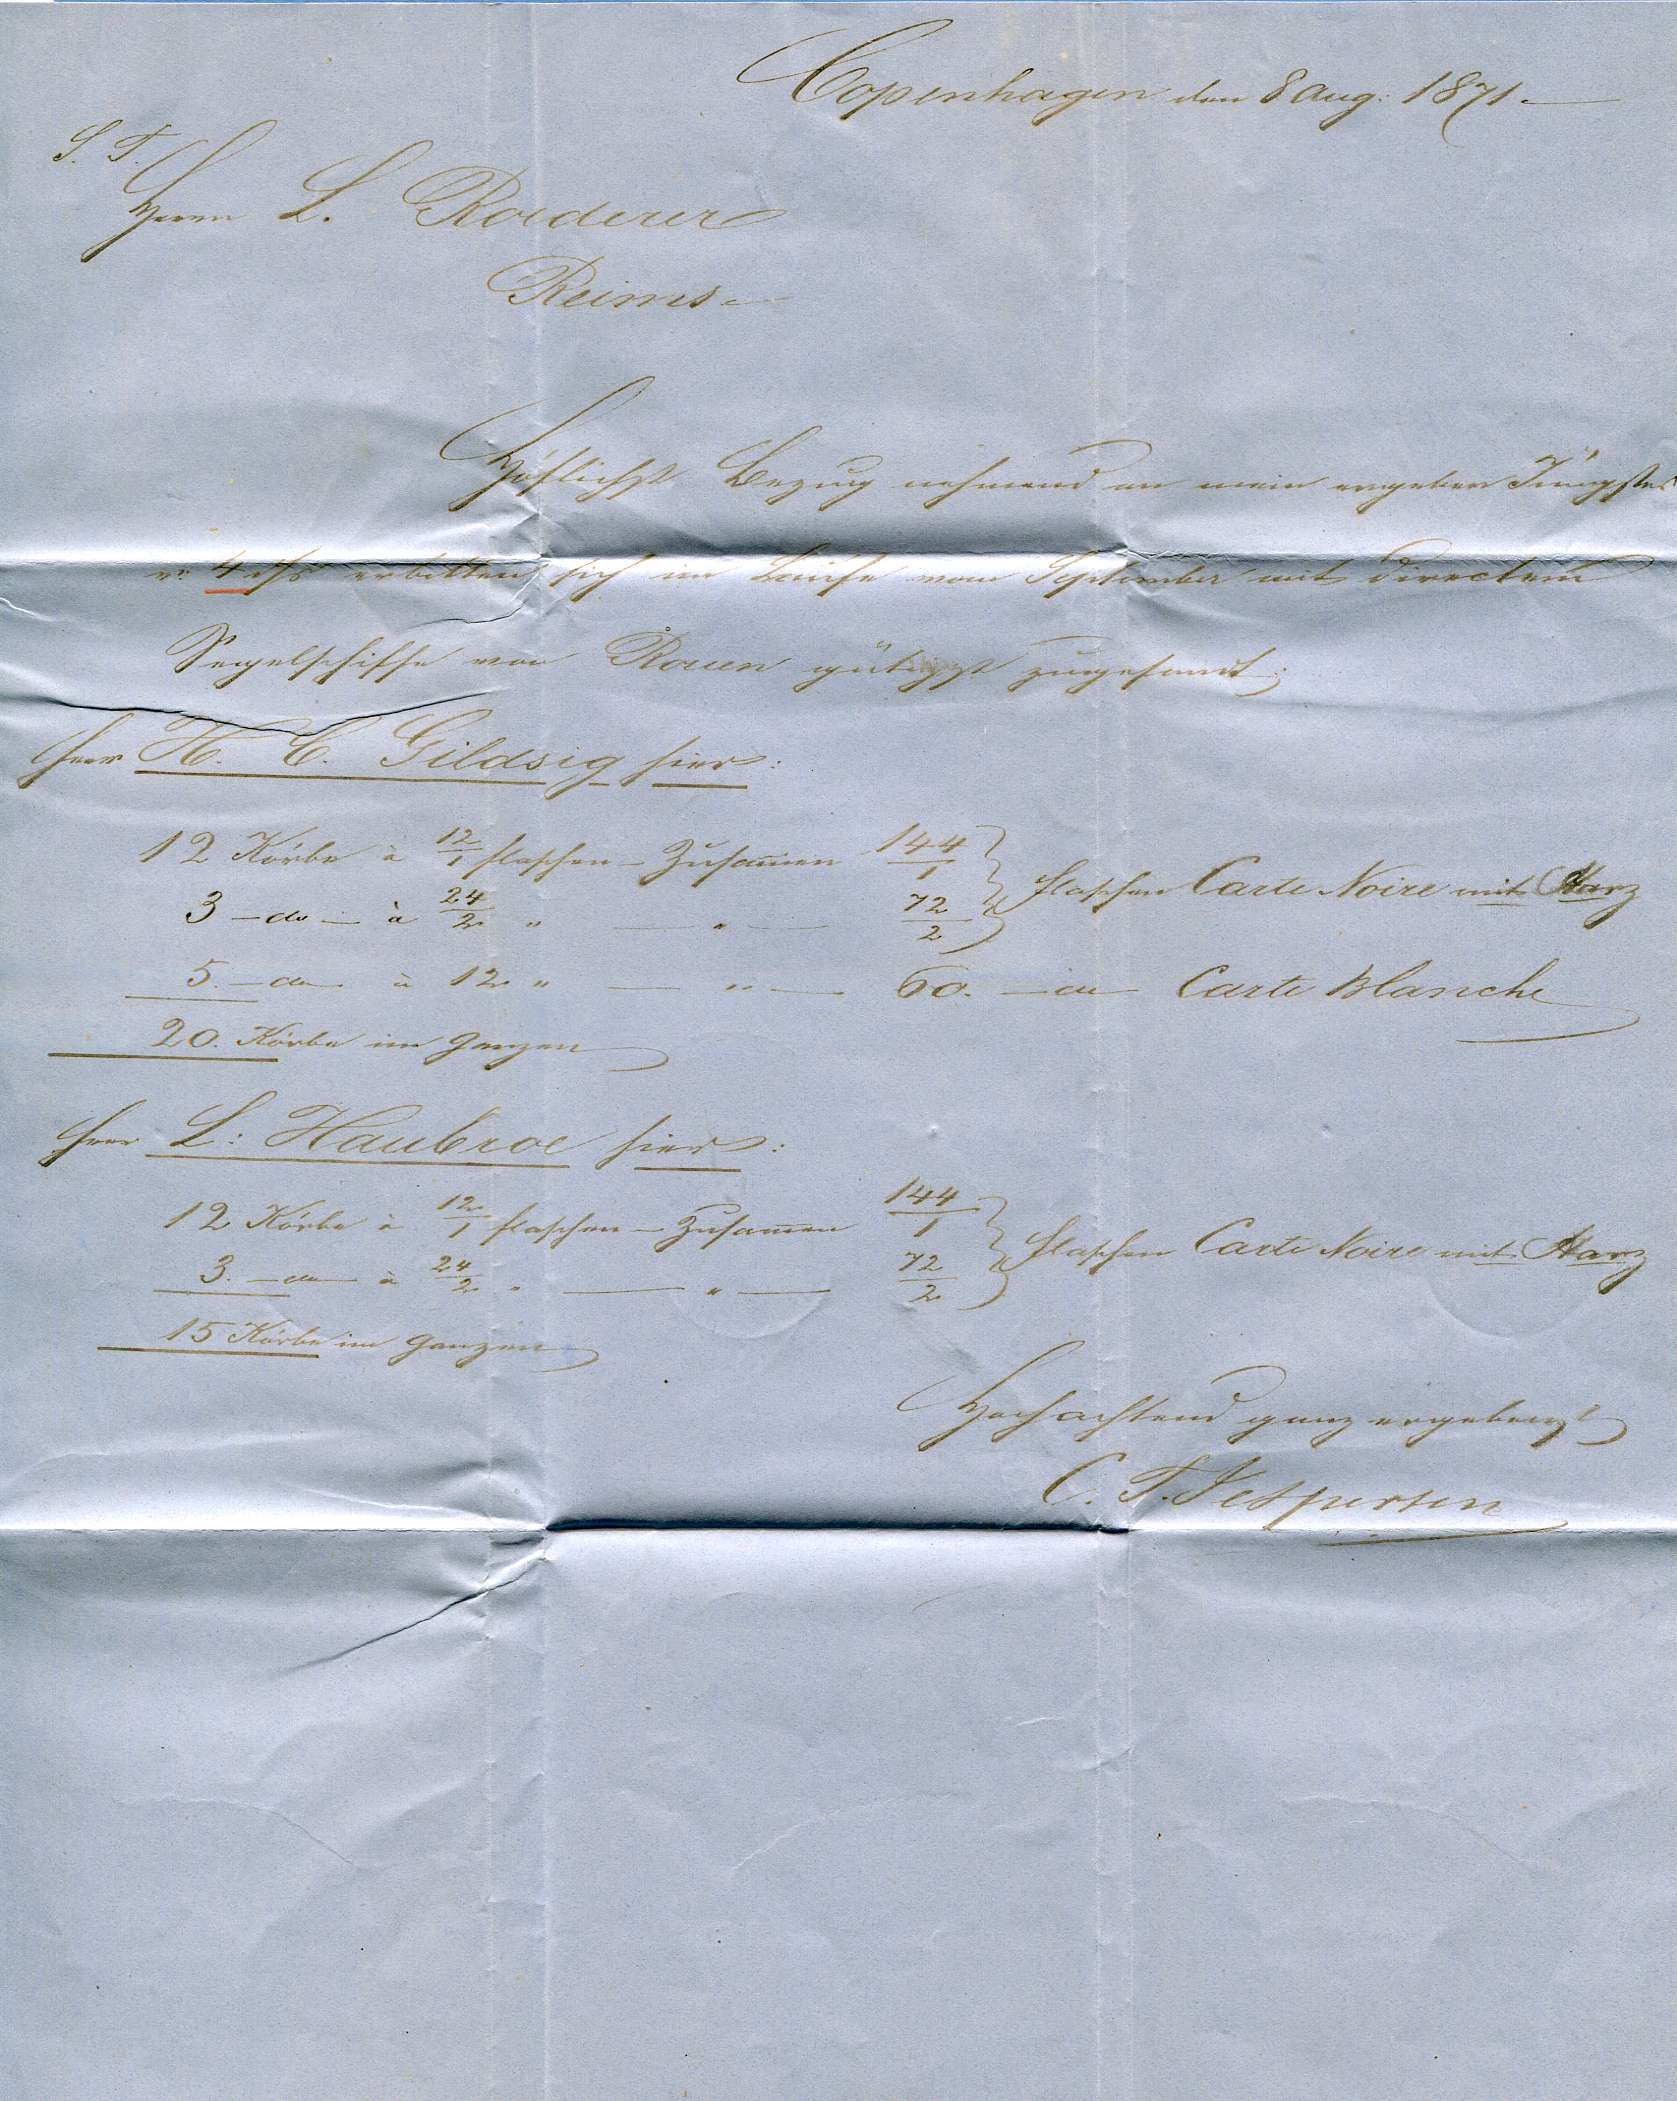 Copenhagen den 8 Aug: 1871.
S. T.
Herrn L. Roederer
Reims.
Höflichst Bezug nehmend an mein ergeben Jüngstes
v. 4 dss erbitten sich im Laufe vom September mit directem
Segelschiffe von Rouen gütigst zugesandt;
Herr H. C. Gildsig hier:
12 Körbe à 12/1 flaschen – Zusam̄en 144/1
3 – do – à 24/2 " — " — 72/2
} flaschen Carte Noire mit Harz
5. – do – à 12 " — " — 60. – do – Carte Blanche
20. Körbe im Ganzen
Herr L: Haubroe hier:
12 Körbe à 12/1 flaschen – Zusam̄en 144/1
3. – do – à 24/2 " — " — 72/2
} flaschen Carte Noire mit Harz
15 Körbe im Ganzen
Hochachtend ganz ergebenst
C. F. Jespersen